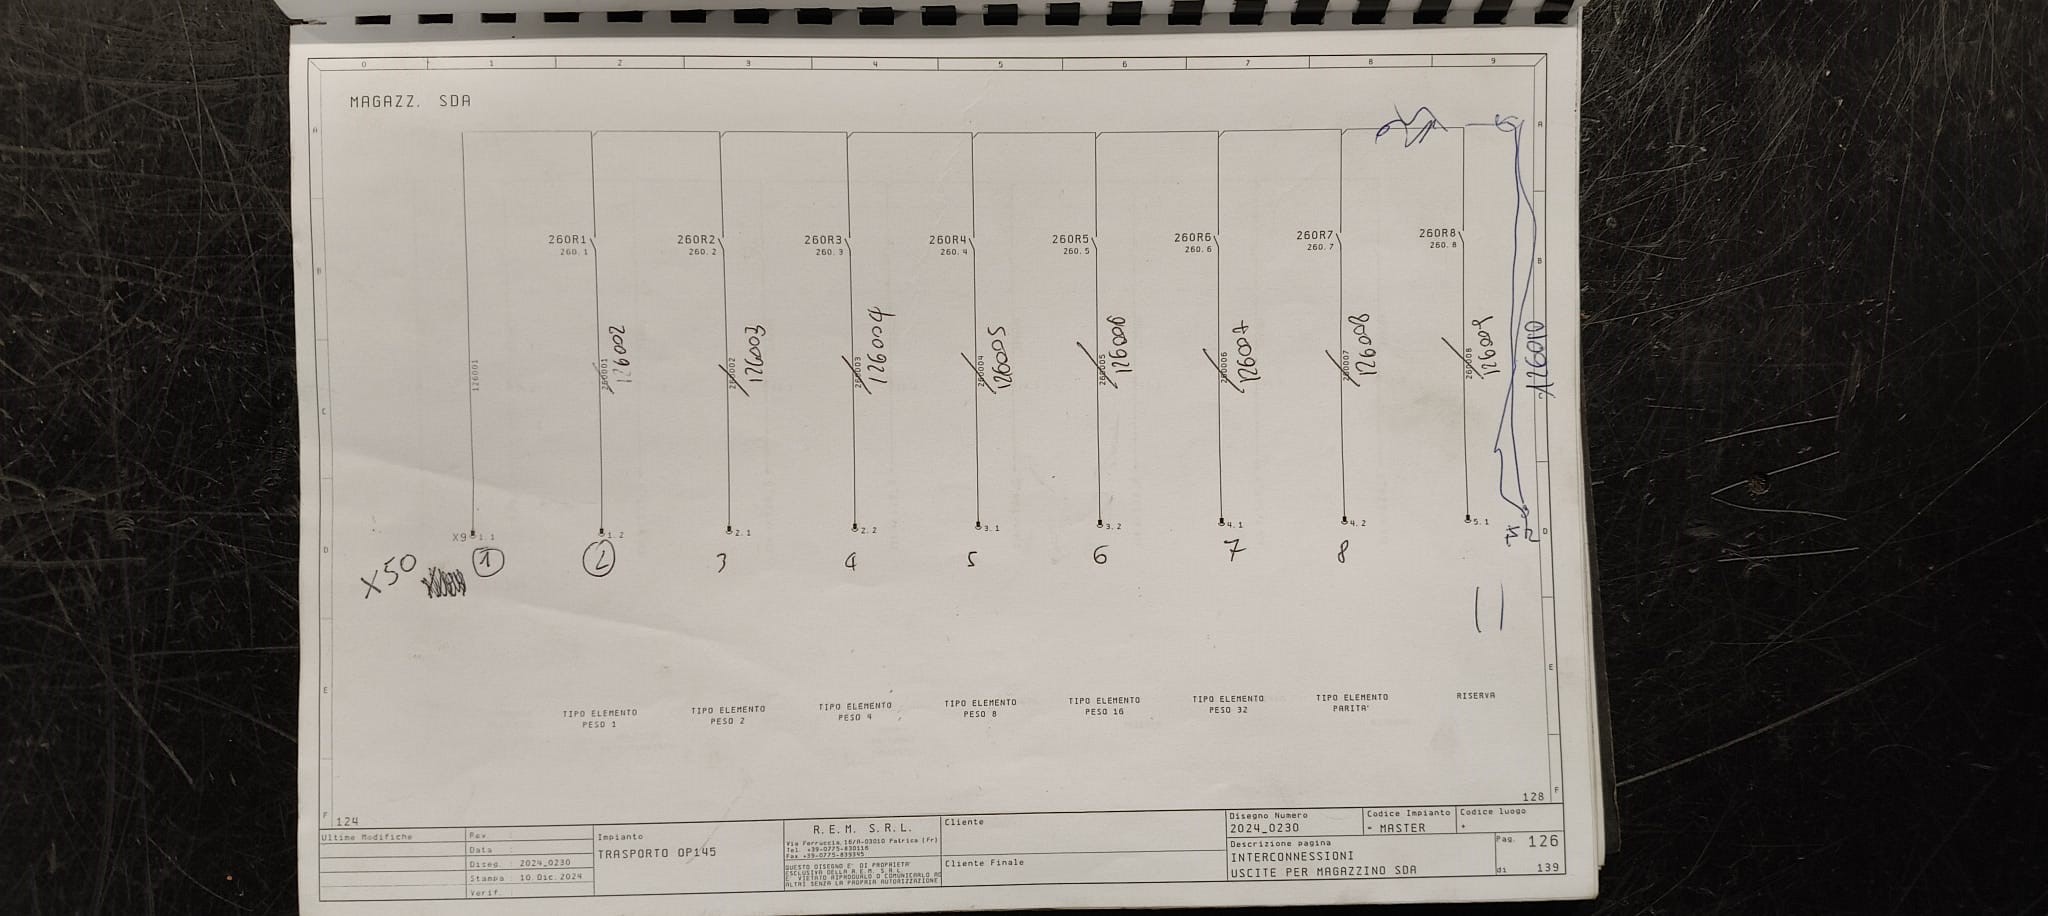 0 1 2 3 4 5 6 7 8 9
MAGAZZ. SDA
A A
260R1 260R2 260R3 260R4 260R5 260R6 260R7 260R8
260.1 260.2 260.3 260.4 260.5 260.6 260.7 260.8
B B
126001 260001 260002 260003 260004 260005 260006 260007 260008
126002 126003 126004 126005 126006 126007 126008 126009 126010
C C
X9 1.1 1.2 2.1 2.2 3.1 3.2 4.1 4.2 5.1
D D
X50 1 2 3 4 5 6 7 8
E E
TIPO ELEMENTO TIPO ELEMENTO TIPO ELEMENTO TIPO ELEMENTO TIPO ELEMENTO TIPO ELEMENTO TIPO ELEMENTO RISERVA
PESO 1 PESO 2 PESO 4 PESO 8 PESO 16 PESO 32 PARITA'
F 124 128 F
Ultime Modifiche
Rev. :
Data :
Diseg. : 2024_0230
Stampa : 10.Dic.2024
Verif. :
Impianto
TRASPORTO OP145
R.E.M. S.R.L.
Via Ferruccia,16/A-03010 Patrica (Fr)
Tel. +39-0775-830116
Fax +39-0775-839345
QUESTO DISEGNO E' DI PROPRIETA'
ESCLUSIVA DELLA R.E.M. S.R.L.
E' VIETATO RIPRODURLO O COMUNICARLO AD
ALTRI SENZA LA PROPRIA AUTORIZZAZIONE
Cliente
Cliente Finale
Disegno Numero
2024_0230
Codice Impianto
= MASTER
Codice luogo
+
Descrizione pagina
INTERCONNESSIONI
USCITE PER MAGAZZINO SDA
Pag. 126
di 139